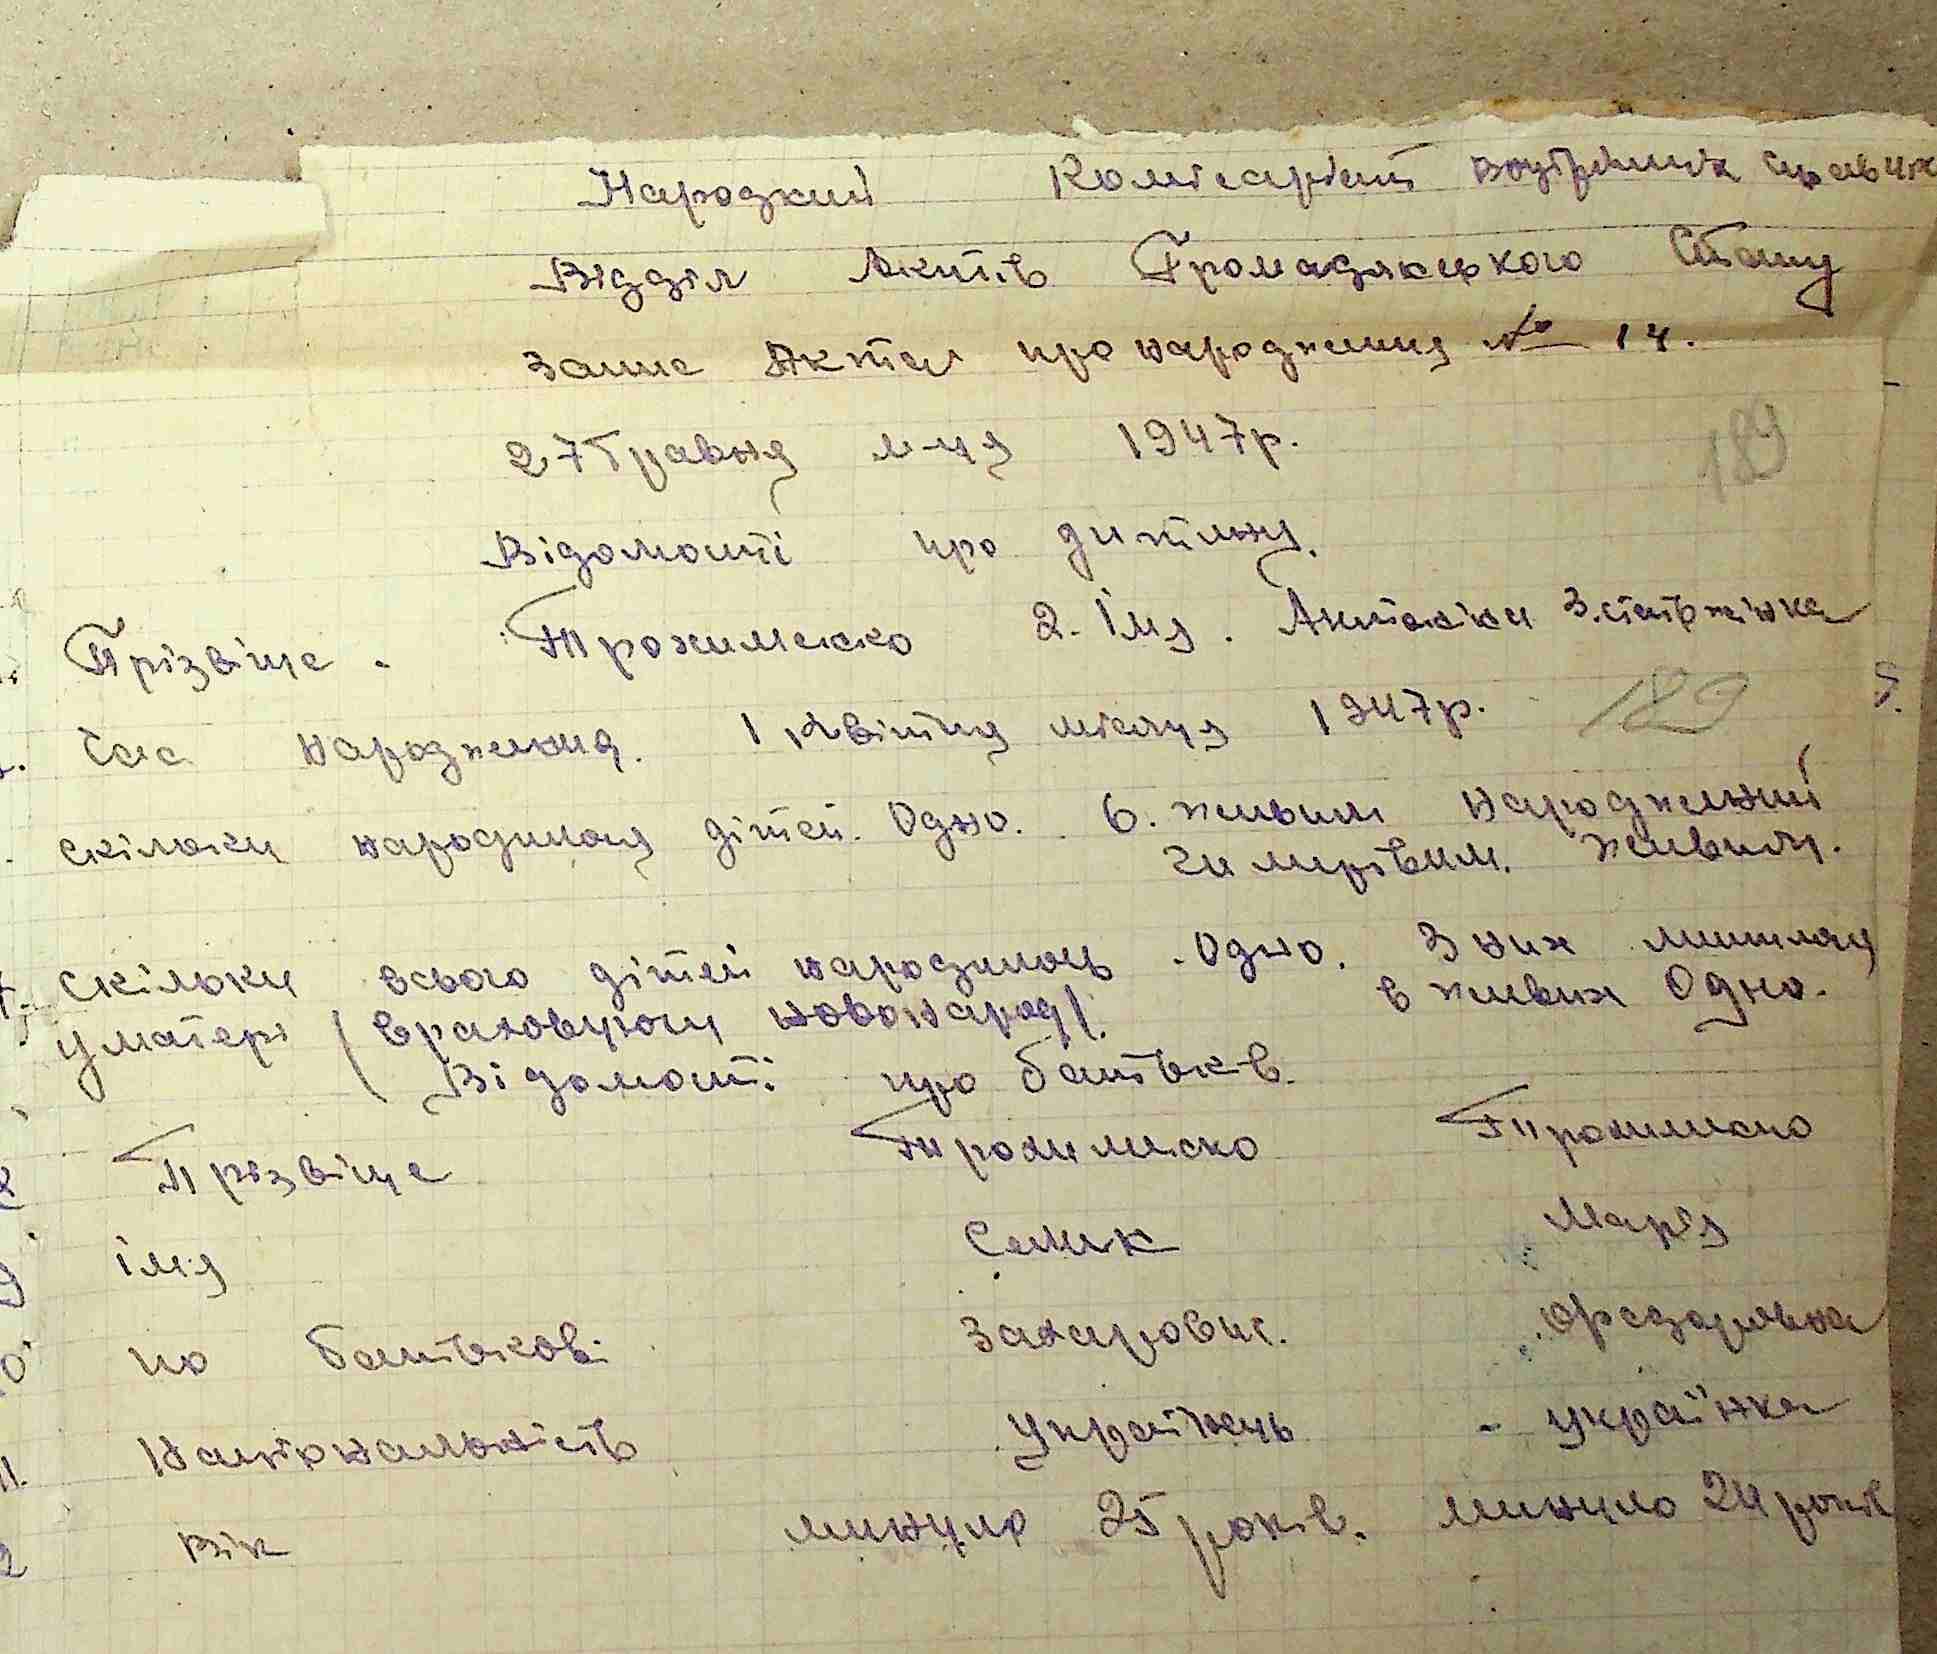 Народний Комісаріат внутрішніх справ
Відділ Актів Громадянського Стану
Запис Акта про народження № 14.
27 травня м-ця 1947р.
189
Відомості про дитину.
Прізвіще. Трохименко 2. Імя. Антоніна 3. стать жінка
Час народження. 1 квітня місяця 1947р. 189 5.
скільки народилося дітей. Одно. 6. живим народжений
чи мертвим. живим.
7. Скільки всього дітей народилось. Одно. З них лишилися
у матері /враховуючи новонарод/. в живих Одно.
Відомості про батьків.
8 Прізвіще Трохименко Трохименко
9 імя Семен Марія
10 по батькові Захарович. Федорівна
11. Національність Українець - українка
12 вік минуло 25 років. минуло 24 років